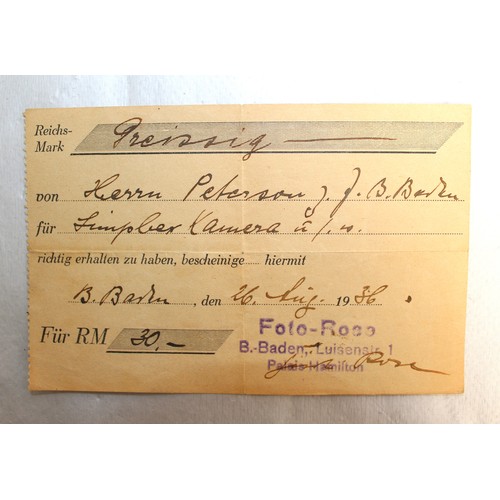 Reichs-
Mark Dreissig
von Herrn Peterson z. Z. B. Baden
für Simplex Kamera u.
richtig erhalten zu haben, bescheinige hiermit
B. Baden, den 26. Aug. 1936.
Für RM 30.-
Foto-Rose
B.-Baden, Luisenstr. 1
Palais Hamilton
Rose